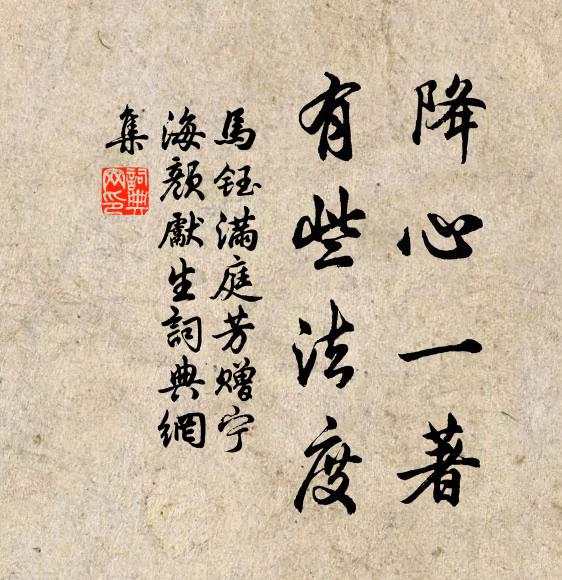 降心一著
有些法度
馬鈺滿庭芳赠宁
海顏獻生詞典網
集
詞典
网印